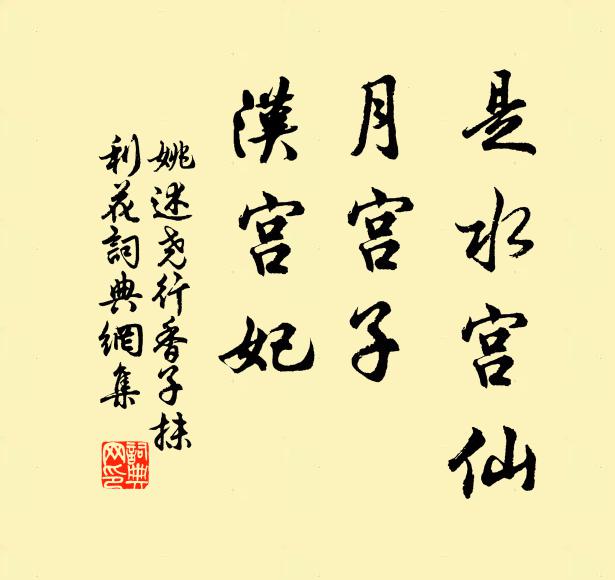 是水宫仙
月宫子
漢宫妃
姚述尧行香子抹
利花詞典網集
詞典
网印